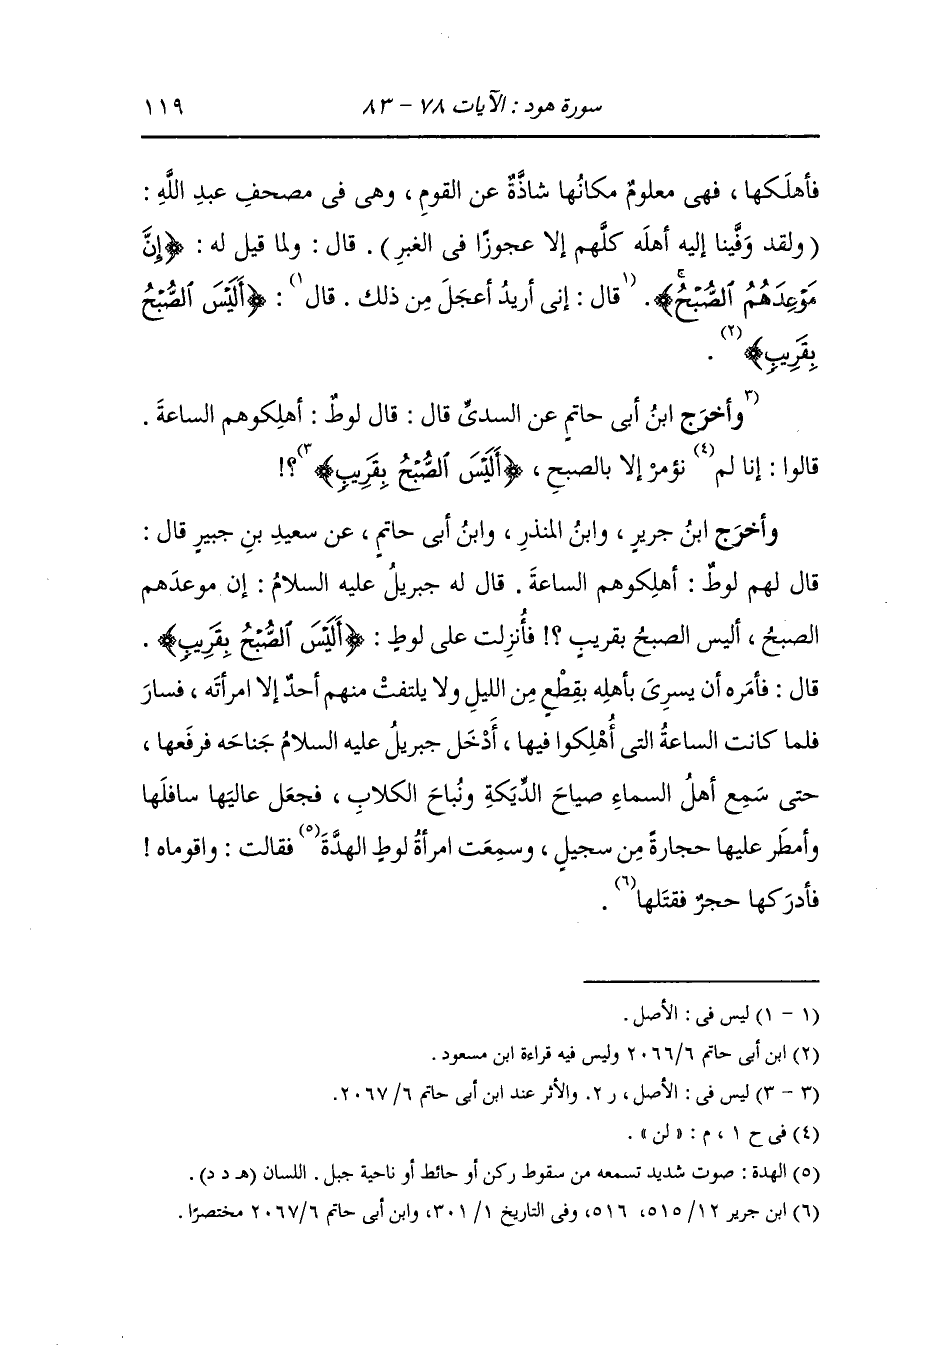 سورة هود : الآيات ٧٨ – ٨٣ ١١٩
فأهلَكها ، فهى معلومٌ مكانُها شاذَّةٌ عن القومِ ، وهى فى مصحفِ عبدِ اللَّهِ :
( ولقد وَفَّينا إليه أهلَه كلَّهم إلا عجوزًا فى الغبرِ ) . قال : ولما قيل له : ﴿إِنَّ
مَوْعِدَهُمُ ٱلصُّبْحُۚ﴾ . (١قال : إنى أريدُ أعجَلَ مِن ذلك . قال١) : ﴿أَلَيْسَ ٱلصُّبْحُ
بِقَرِيبٍ﴾(٢) .
(٣وأخرَج ابنُ أبى حاتمٍ عن السدىِّ قال : قال لوطٌ : أهلِكوهم الساعةَ .
قالوا : إنا لم(٤) نؤمرْ إلا بالصبحِ ، ﴿أَلَيْسَ ٱلصُّبْحُ بِقَرِيبٍ﴾٣)؟!
وأخرَج ابنُ جريرٍ ، وابنُ المنذرِ ، وابنُ أبى حاتمٍ ، عن سعيدِ بنِ جبيرٍ قال :
قال لهم لوطٌ : أهلِكوهم الساعةَ . قال له جبريلُ عليه السلامُ : إن موعدَهم
الصبحُ ، أليس الصبحُ بقريبٍ ؟! فأُنزِلت على لوطٍ : ﴿أَلَيْسَ ٱلصُّبْحُ بِقَرِيبٍ﴾ .
قال : فأمَره أن يسرىَ بأهلِه بقِطْعٍ مِن الليلِ ولا يلتفتْ منهم أحدٌ إلا امرأتَه ، فسارَ
فلما كانت الساعةُ التى أُهْلِكوا فيها ، أَدْخَل جبريلُ عليه السلامُ جَناحَه فرفَعها ،
حتى سَمِع أهلُ السماءِ صياحَ الدِّيَكةِ ونُباحَ الكلابِ ، فجعَل عاليَها سافلَها
وأمطَر عليها حجارةً مِن سجيلٍ ، وسمِعَت امرأةُ لوطٍ الهدَّةَ(٥) فقالت : واقوماه !
فأدرَكها حجرٌ فقتَلها(٦) .
(١ – ١) ليس فى : الأصل .
(٢) ابن أبى حاتم ٢٠٦٦/٦ وليس فيه قراءة ابن مسعود .
(٣ – ٣) ليس فى : الأصل ، ر ٢. والأثر عند ابن أبى حاتم ٢٠٦٧/٦.
(٤) فى ح ١ ، م : « لن » .
(٥) الهدة : صوت شديد تسمعه من سقوط ركن أو حائط أو ناحية جبل . اللسان (هـ د د) .
(٦) ابن جرير ٥١٥/١٢، ٥١٦، وفى التاريخ ٣٠١/١، وابن أبى حاتم ٢٠٦٧/٦ مختصرًا .